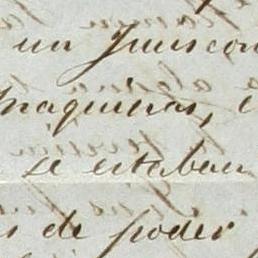 un Juriscon
maquinas, e
se estaban
s de poder